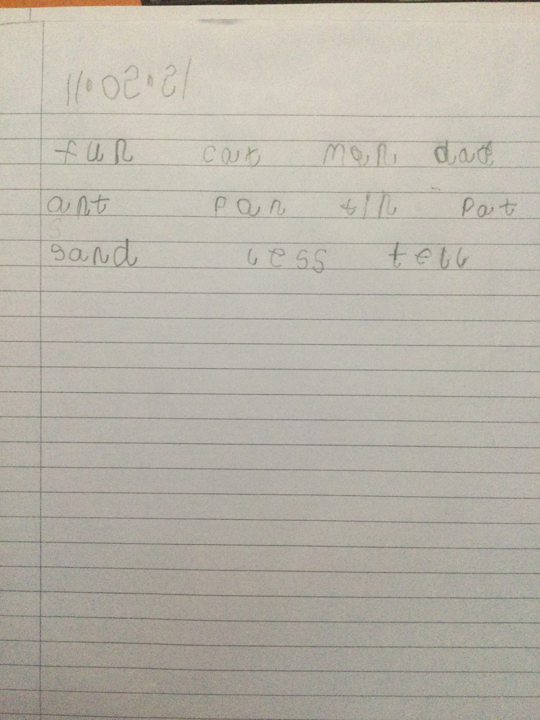 11.02.21
fun cat man dad
ant pan tin pat
sand less tell